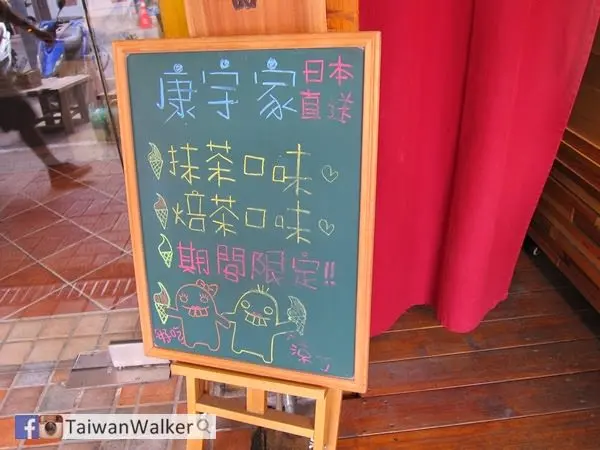 康宇家 日本直送
抹茶口味
焙茶口味
期間限定!!
好吃
涼
TaiwanWalker